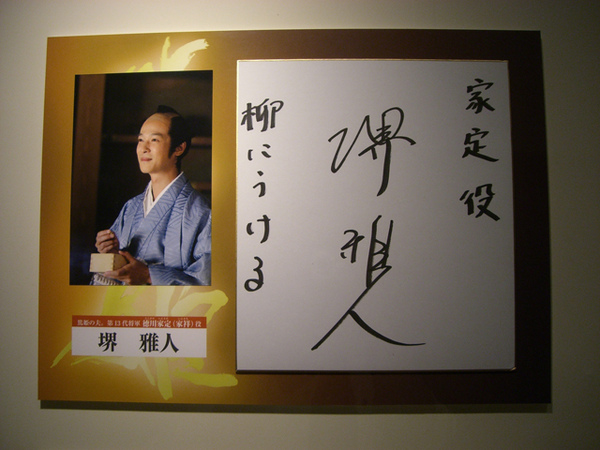 家定役
堺雅人
柳にうける
篤姫の夫、第13代将軍 徳川家定(家祥)役
堺 雅人